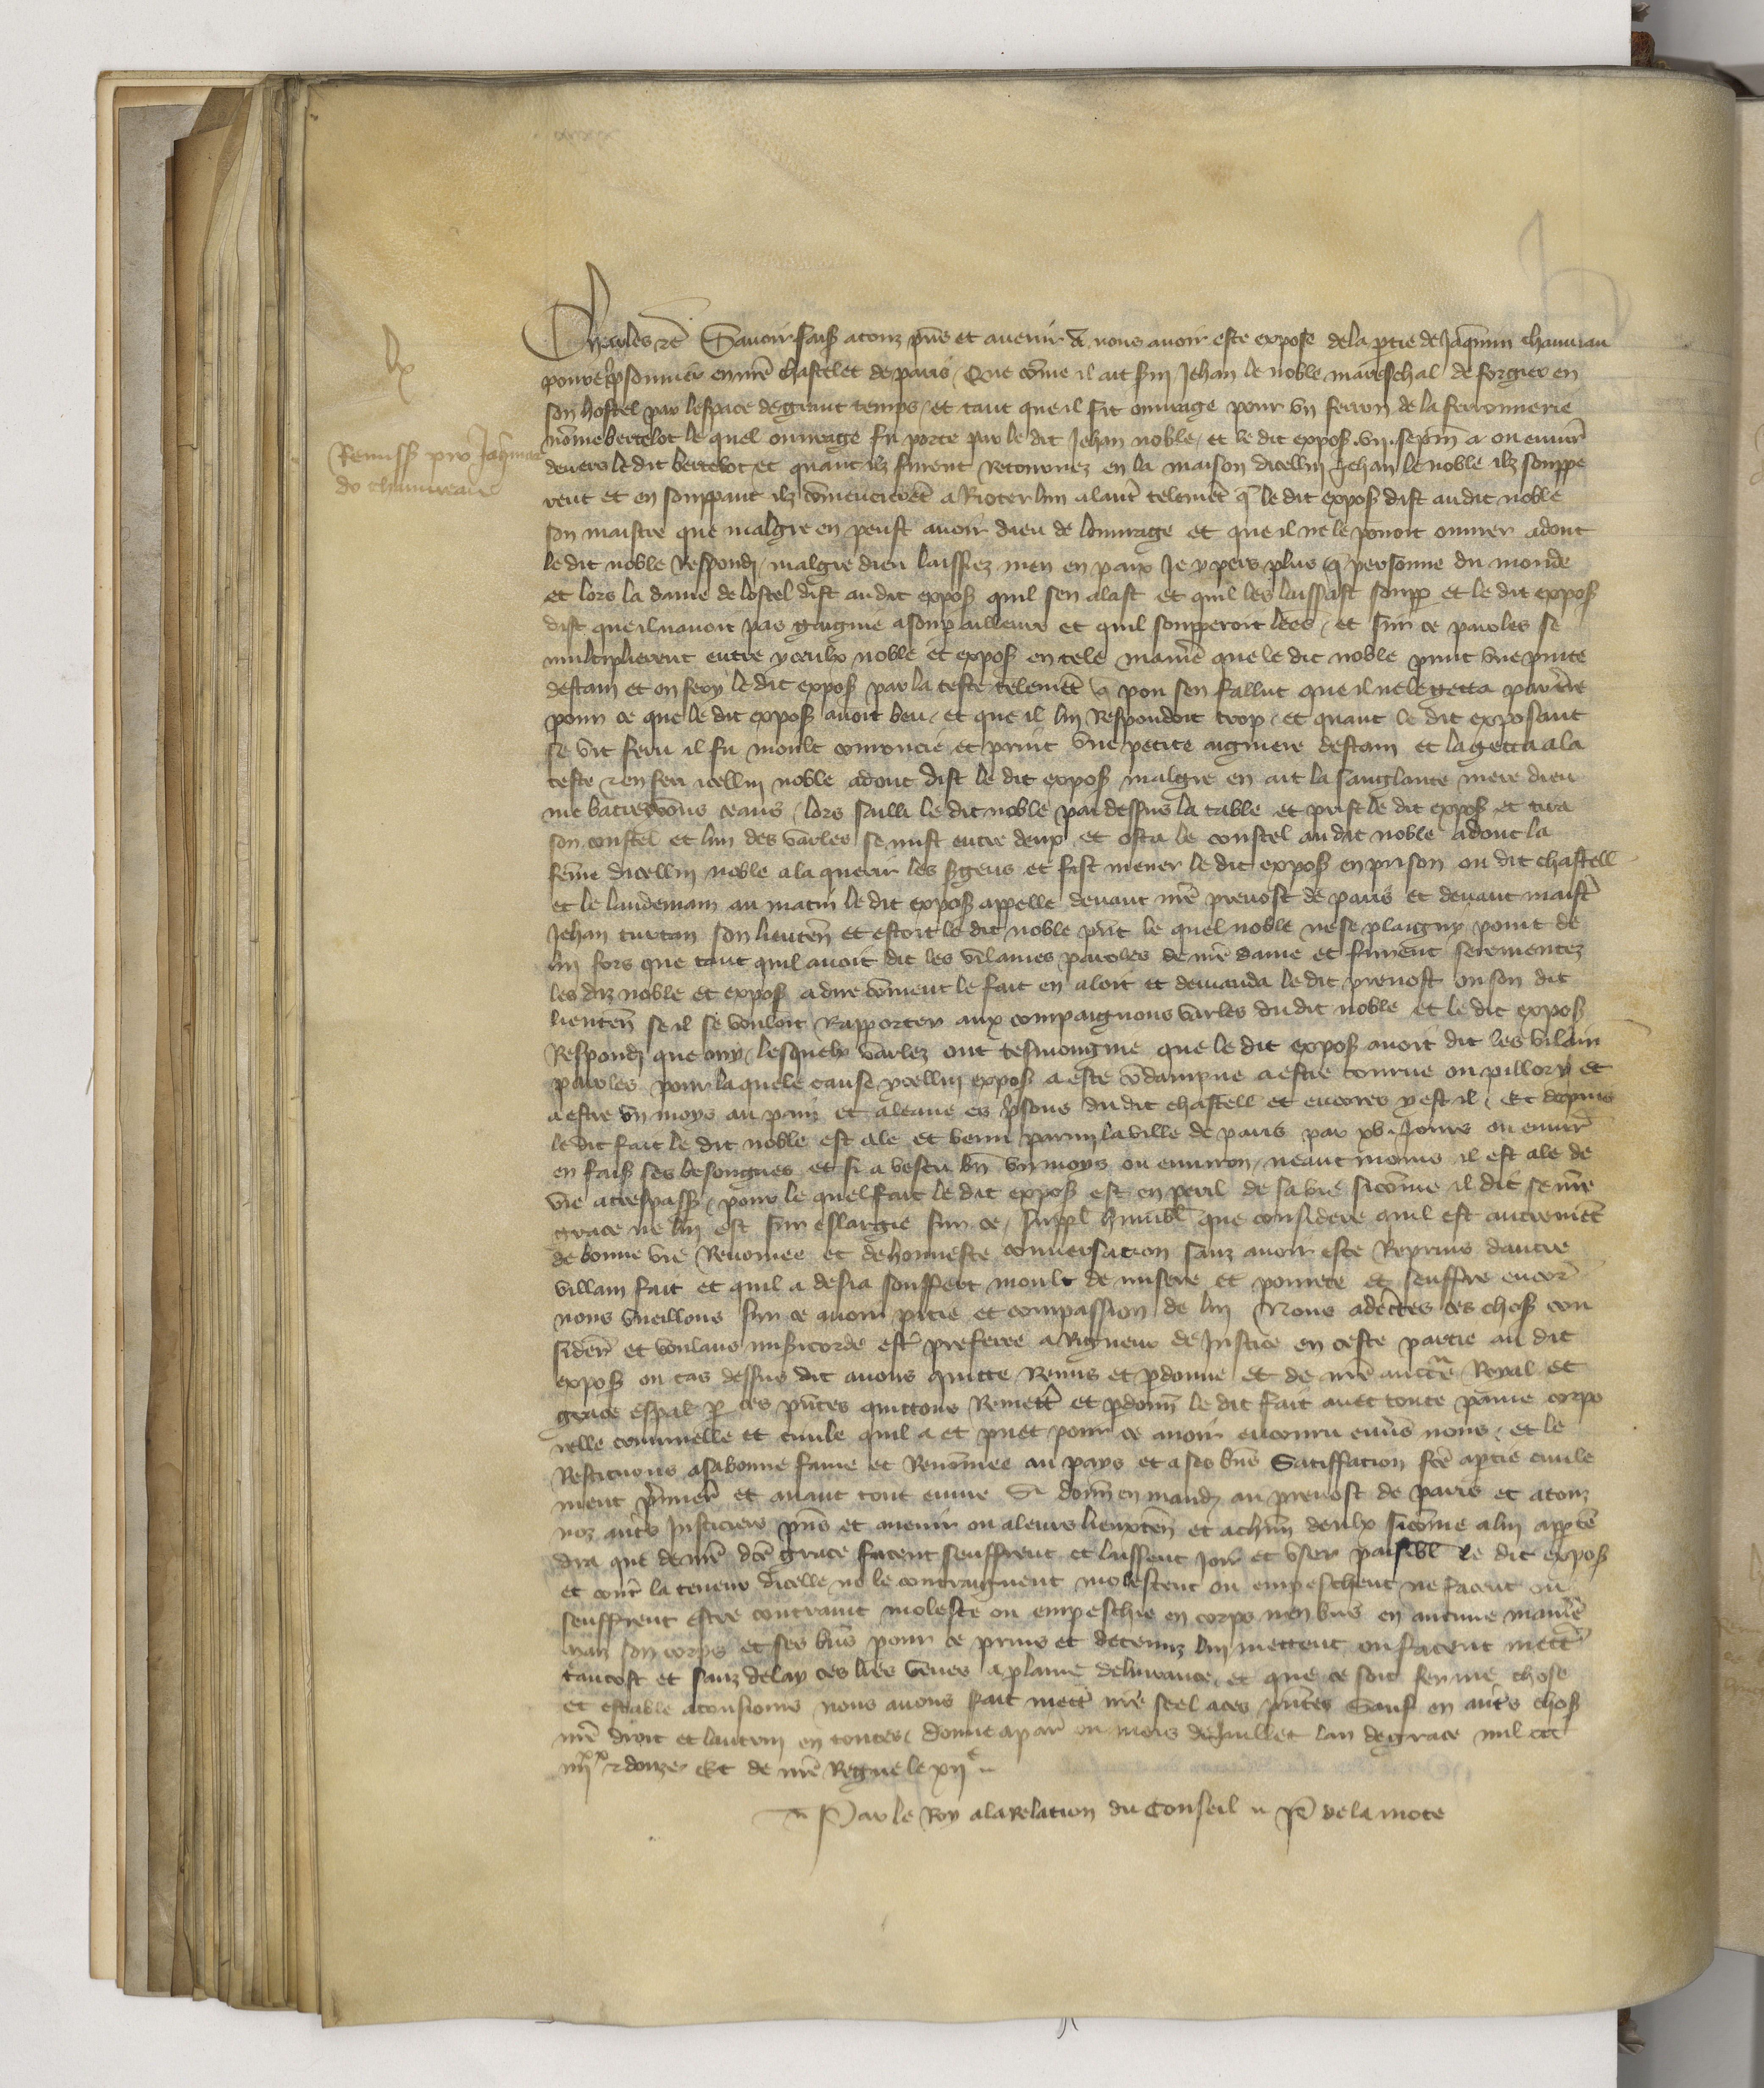 lx
Remiss pro Jaqmino
de chauureau
Charles etc Sauoir faiss a touz pns et auenir A nous auoir este expose de la ptie de Jaqmin chauuiau
poure psonnier en nre chastelet de paris / Que come il ait serui Jehan le noble mareschal de forgier en
son hostel par lespace de grant temps / et tant que il fit ouurage pour vn ferron de la ferronnerie
nome bertelot le quel ouurage fu porte par le dit Jehan noble / et le dit expos .vii. sepmn a ou enuir
deuers le dit bertelot et quant ilz furent Retournez en la maison dicellui Jehan le noble ilz souppe
rent et en souppant ilz comencierent a Rioter lun a laut telemt q le dit expos dist au dit noble
son maistre que malgre en peust auoir dieu de louurage et que il ne le pouoit ouurer adont
le dit noble Respondi / malgre dieu laissiez men en paix Je y pers plus q personne du monde
et lors la dame de lostel dist au dit expos quil sen alast et quil les laissast soupp et le dit expos
dist que il nauoit pas gaigne a soup ailleurs et quil soupperoit leens / et sur ce paroles se
multiplierent entre yceulx noble et expos en tele maniere que le dit noble print vne pinte
destain et en fery le dit expos par la teste telement q pou sen fallut que il ne le getta par tre
pour ce que le dit expos auoit beu / et que il lui Respondoit trop / et quant le dit exposant
se vit feru il fu moult courroucie et print vne petite aiguiere destain et la getta a la
teste et en feri icellui noble adont dist le dit expos malgre en ait la sanglante mere dieu
me batres vous ceans / lors sailli le dit noble par dessus la table et prist le dit expos et tira
son coustel et lun des varles se mist entre deux et osta le coustel au dit noble adont la
feme dicellui noble ala querir les sgens et fist mener le dit expos en prison ou dit chastell
et le landemain au matin le dit expos appelle deuant nre preuost de paris et deuant maist
Jehan truqan son lieuten et estoit le dit noble pnt le quel noble ne se plaigny point de
lui fors que tant quil auoit dit les vilaines paroles de nre dame et furent serementez
les diz noble et expos a dire coment le fait en aloit et demanda le dit preuost ou son dit
lieuten se il se vouloit Rapporter aux compaignons varles du dit noble et le dit expos
Respondi que ouy / lesquelx varlez ont tesmoingne que le dit expos auoit dit les vilain
paroles pour laquele cause ycellui expos a este condampne a estre tourne ou pillory et
a estre vn moys au pain et a leaue es prsons du dit chastell et encores y est il / Et depuis
le dit fait le dit noble est ale et venu parmi la ville de paris par xv. Jours ou enuir
en faiss ses besongnes et si a vescu bn vn moys ou enuiron / neant moins il est ale de
vie a trespass / pour le quel fait le dit expos est en peril de sa vie sicome il dit se nre
grace ne lui est sur eslargie sur ce / suppl humbl que considere quil est autrement
de bonne vie Renomee et de honneste conuersacion sanz auoir este Reprins dautre
villain fait et quil a desia souffert moult de misere et pourete et seuffre encor
nous vueillons sur ce auoir pitie et compassion de lui Nous adecertes ces chos con
sideres et voulans misicorde est preferee a Rigueur de Justice en ceste partie au dit
expos ou cas dessus dit auons quitte Remis et pdonne et de nre auctte Royal et
grace espal p ces pntes quittons Remett et pdonn le dit fait auec toute paine corpo
relle criminelle et ciuile quil a et puet pour ce auoir encouru enuers nous / et le
Restituons a sa bonne fame et Renomee au pays et a ses bns Satiffacion fce a ptie ciuile
ment pmier et auant tout euure Si donn en mand au preuost de paris et a touz
noz autres Justiciers pns et auenir ou a leurs lieuxten et a chun deulx sicome a lui apptie
dra que de nre dce grace facent seuffrent et laissent Joir et vser paisibl le dit expos
et contre la teneur dicelle ne le contraignent molestent ou empeschent ne facent ou
seuffrent estre contraint moleste ou empeschie en corps nen bns en aucune manie
maiz son corps et ses bns pour ce prins et detenuz lui mettent ou facent mett
tantost et sanz delay ces lres veues a plaine deliurance / et que ce soit ferme chose
et estable a tousiours nous auons fait mett nre seel a ces pntes Sauf en autres chos
nre droit et lautrui en toutes / donne a par ou mois de Juillet lan de grace mil ccc
iiiixx et douze Et de nre Regne le xije
Par le Roy a la Relacion du Conseil pe de la mote